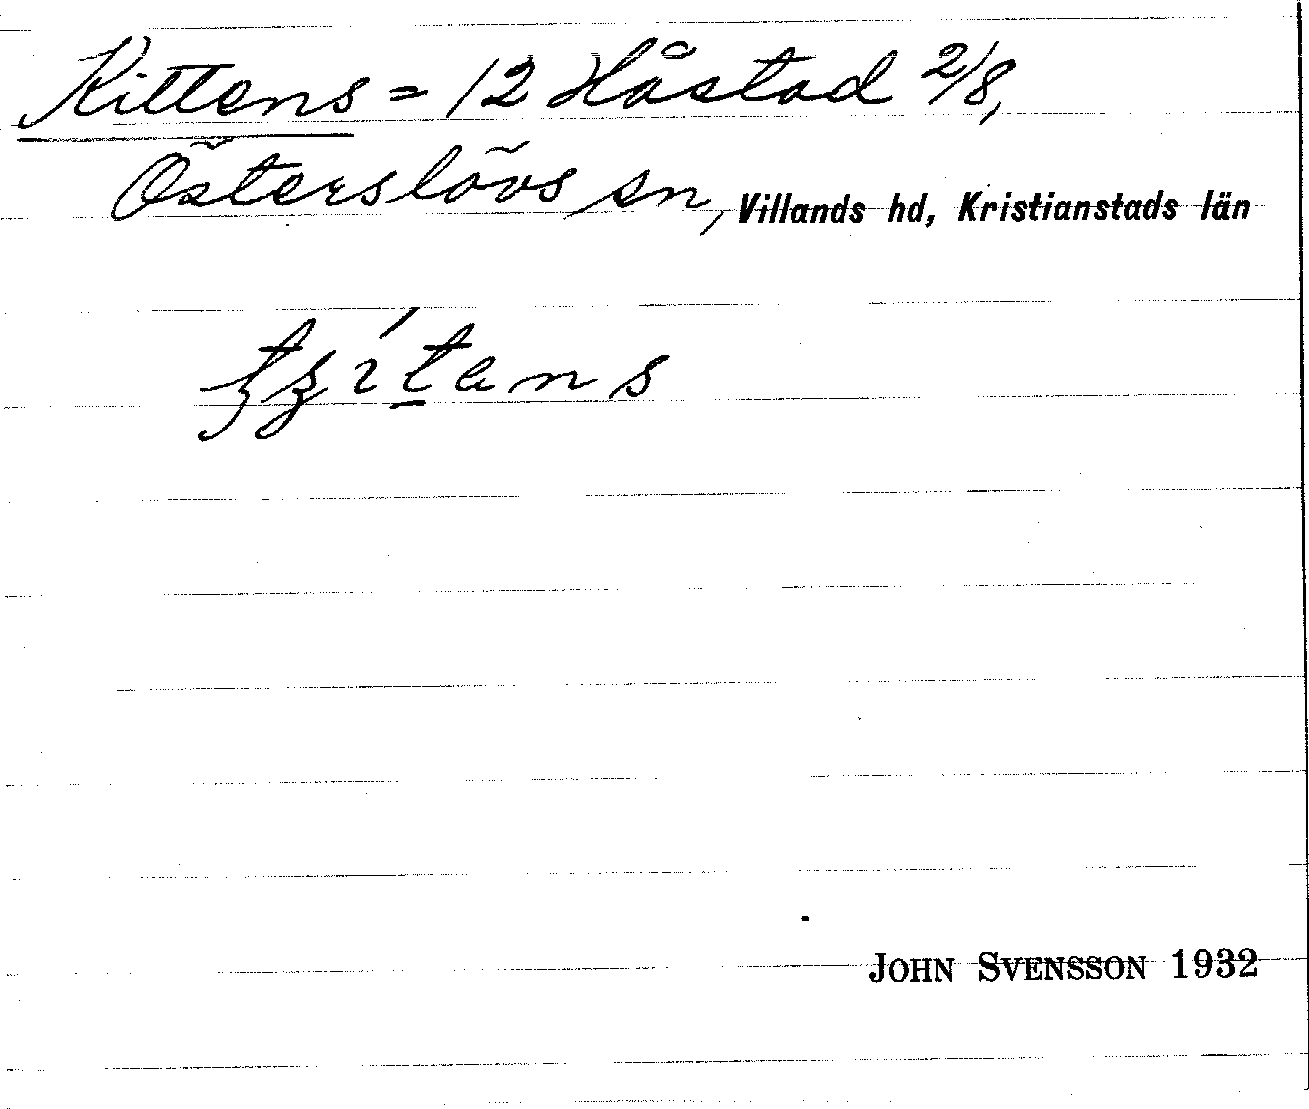 Kittens = 12 Håstad 2/8,
Österslövs sn, Villands hd, Kristianstads län
JOHN SVENSSON 1932